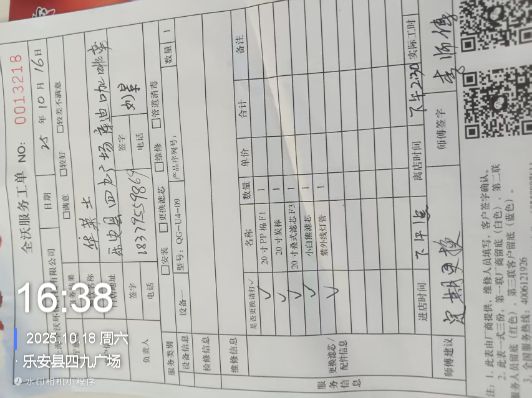 全沃服务工单 NO: 0013218
日期 25年10月16日
□满意 □较好 □较差不满意
乐安县四九广场库迪咖啡
签字
负责人 电话 18379559869 签字 电话
服务类别 □安装 □更换滤芯 □维修 □管道消毒
设备信息 设备 型号: QG-U4-09 产品序列号: 数量 1
检修信息
维修信息
是否更换请打✓ 名称 数量 单价 合计 备注
✓ 20寸PP棉P1 1
✓ 20寸炭棒 1
✓ 20寸叠式滤芯F3 1
✓ 小白熊滤芯 1
✓ 紫外线灯管 1
服务信息 更换滤芯/配件信息
进店时间 下午 离店时间 下午2:30 实际工时
师傅建议 定期更换 师傅签字 李师傅
注: 1、此表由厂商提供, 维修人员填写, 客户签字确认。
2、此表一式三份, 第一联厂商留底(白色), 第二联
服务人员留底(红色), 第三联客户留底(蓝色)。
服务热线: 4006121926
16:38
2025.10.18 周六
乐安县四九广场
水印相机小程序